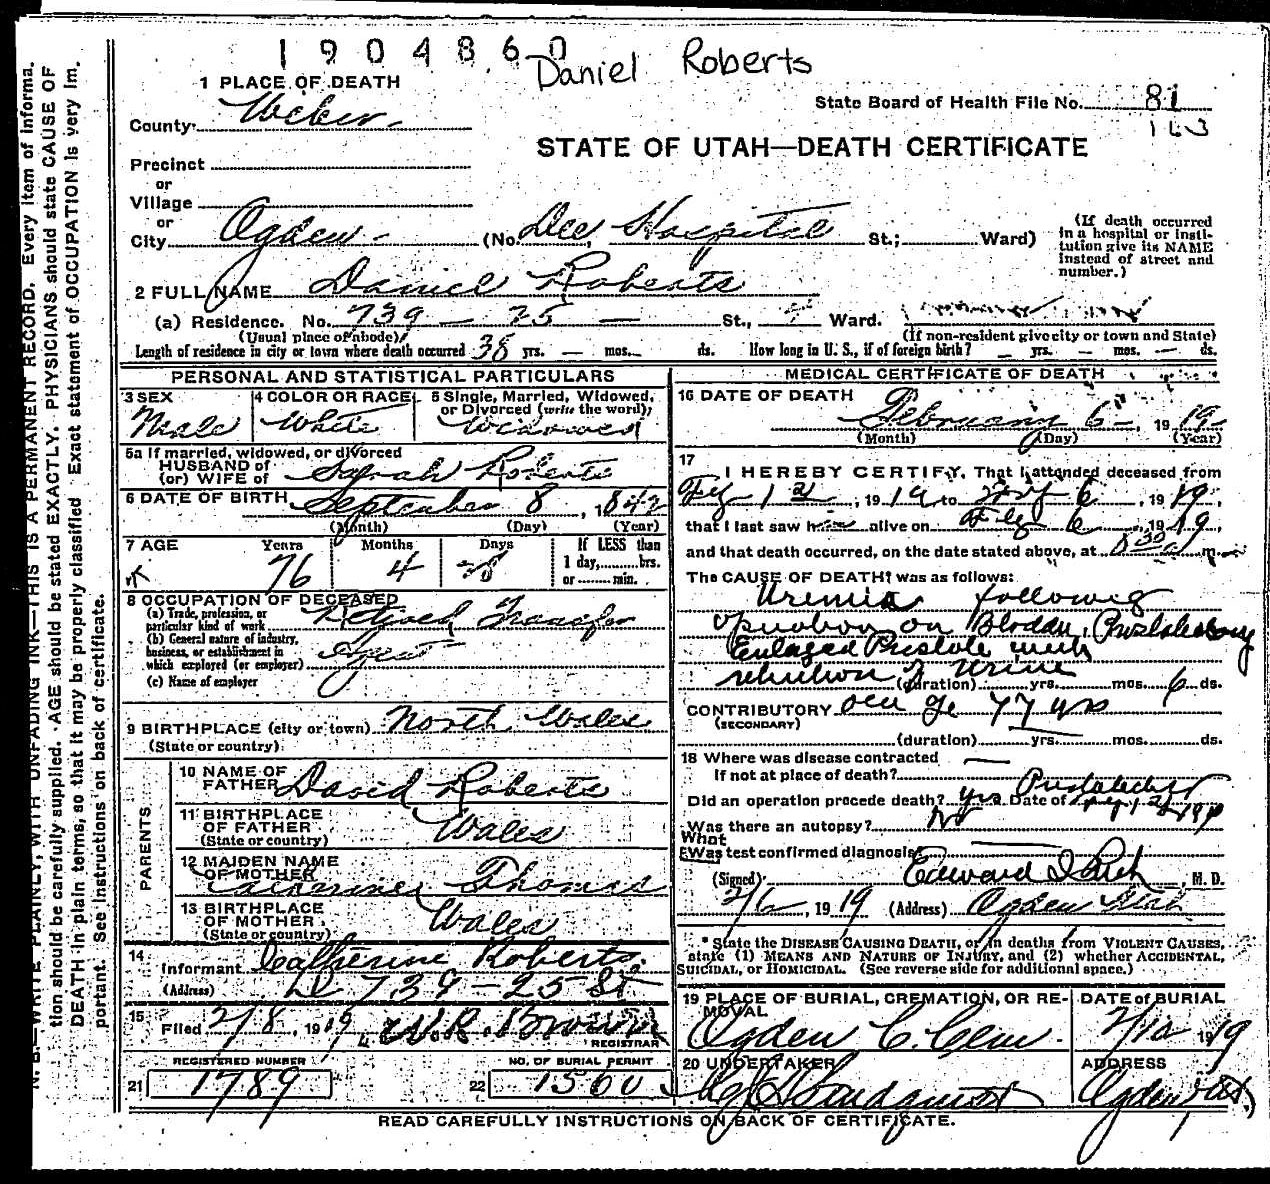 1904860
Daniel Roberts
1 PLACE OF DEATH
State Board of Health File No. 81
County Weber
163
STATE OF UTAH—DEATH CERTIFICATE
Precinct
or
Village
or
City Ogden (No. Dee Hospital St.; Ward)
(If death occurred in a hospital or institution give its NAME instead of street and number.)
2 FULL NAME Daniel Roberts
(a) Residence. No. 739 — 25 — St., Ward.
(Usual place of abode) (If non-resident give city or town and State)
Length of residence in city or town where death occurred 38 yrs. — mos. ds. How long in U. S., if of foreign birth? — yrs. — mos. — ds.
PERSONAL AND STATISTICAL PARTICULARS
3 SEX Male
4 COLOR OR RACE White
5 Single, Married, Widowed, or Divorced (write the word) Widowed
5a If married, widowed, or divorced
HUSBAND of
(or) WIFE of Sarah Roberts
6 DATE OF BIRTH September 8, 1842
(Month) (Day) (Year)
7 AGE Years Months Days If LESS than
1 day, hrs.
or min.
76 4
8 OCCUPATION OF DECEASED
(a) Trade, profession, or particular kind of work Retired Transfer
(b) General nature of industry, business, or establishment in which employed (or employer) Agent
(c) Name of employer
9 BIRTHPLACE (city or town) North Wales
(State or country)
PARENTS
10 NAME OF FATHER David Roberts
11 BIRTHPLACE OF FATHER Wales
(State or country)
12 MAIDEN NAME OF MOTHER Catherine Thomas
13 BIRTHPLACE OF MOTHER Wales
(State or country)
14
Informant Catherine Roberts.
(Address) 739 — 25 St
15
Filed 2/8, 1919, W.R. Brown
REGISTRAR
REGISTERED NUMBER
21 1789
NO. OF BURIAL PERMIT
22 1560
MEDICAL CERTIFICATE OF DEATH
16 DATE OF DEATH February 6, 1919
(Month) (Day) (Year)
17
I HEREBY CERTIFY, That I attended deceased from
, 1919 to 6, 1919,
that I last saw him alive on 6, 1919,
and that death occurred, on the date stated above, at 8 30 a m.
The CAUSE OF DEATH* was as follows:
Uremia following
operation on Bladder, Prostatectomy
Enlarged Prostate with
retention of Urine
(duration) yrs. mos. 6 ds.
CONTRIBUTORY age 77 yrs
(SECONDARY)
(duration) yrs. mos. ds.
18 Where was disease contracted
If not at place of death? —
Did an operation precede death? yrs Date of
Was there an autopsy? No
What
Was test confirmed diagnosis
(Signed) Edward I Rich, M. D.
2/6, 1919 (Address) Ogden Utah
* State the DISEASE CAUSING DEATH, or in deaths from VIOLENT CAUSES, state (1) MEANS AND NATURE OF INJURY, and (2) whether ACCIDENTAL, SUICIDAL, or HOMICIDAL. (See reverse side for additional space.)
19 PLACE OF BURIAL, CREMATION, OR REMOVAL
Ogden C. Cem.
DATE of BURIAL
2/10 1919
20 UNDERTAKER
ADDRESS
Ogden, Ut.
READ CAREFULLY INSTRUCTIONS ON BACK OF CERTIFICATE.
N. B.—WRITE PLAINLY, WITH UNFADING INK—THIS IS A PERMANENT RECORD. Every item of information should be carefully supplied. AGE should be stated EXACTLY. PHYSICIANS should state CAUSE OF DEATH in plain terms, so that it may be properly classified. Exact statement of OCCUPATION is very important. See instructions on back of certificate.